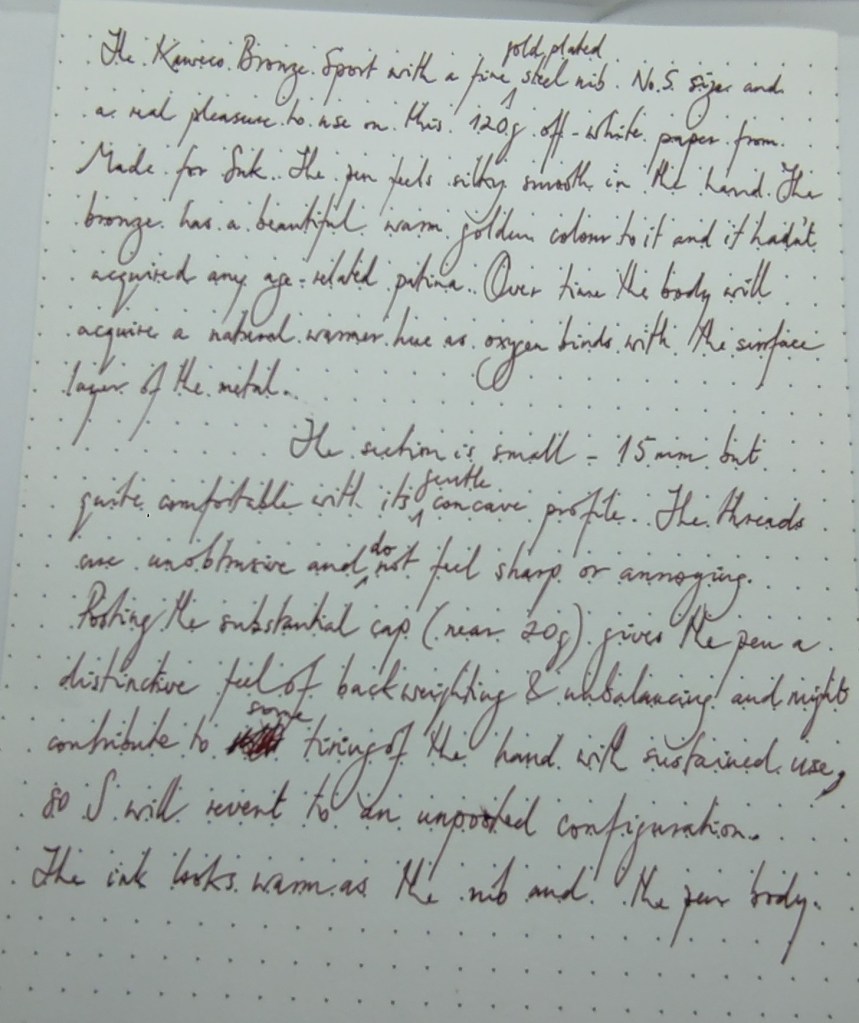 The Kaweco Bronze Sport with a fine gold plated steel nib. No.5 size and
a real pleasure to use on this 120g off-white paper from
Made for Ink. The pen feels silky smooth in the hand. The
bronze has a beautiful warm golden colour to it and it hadn't
acquired any age-related patina. Over time the body will
acquire a natural warmer hue as oxygen binds with the surface
layer of the metal.
The section is small - 15mm but
quite comfortable with its gentle concave profile. The threads
are unobtrusive and do not feel sharp or annoying.
Posting the substantial cap (near 20g) gives the pen a
distinctive feel of backweighting & unbalancing and might
contribute to some tiring of the hand with sustained use,
so I will revert to an unposted configuration.
The ink looks warm as the nib and the pen body.